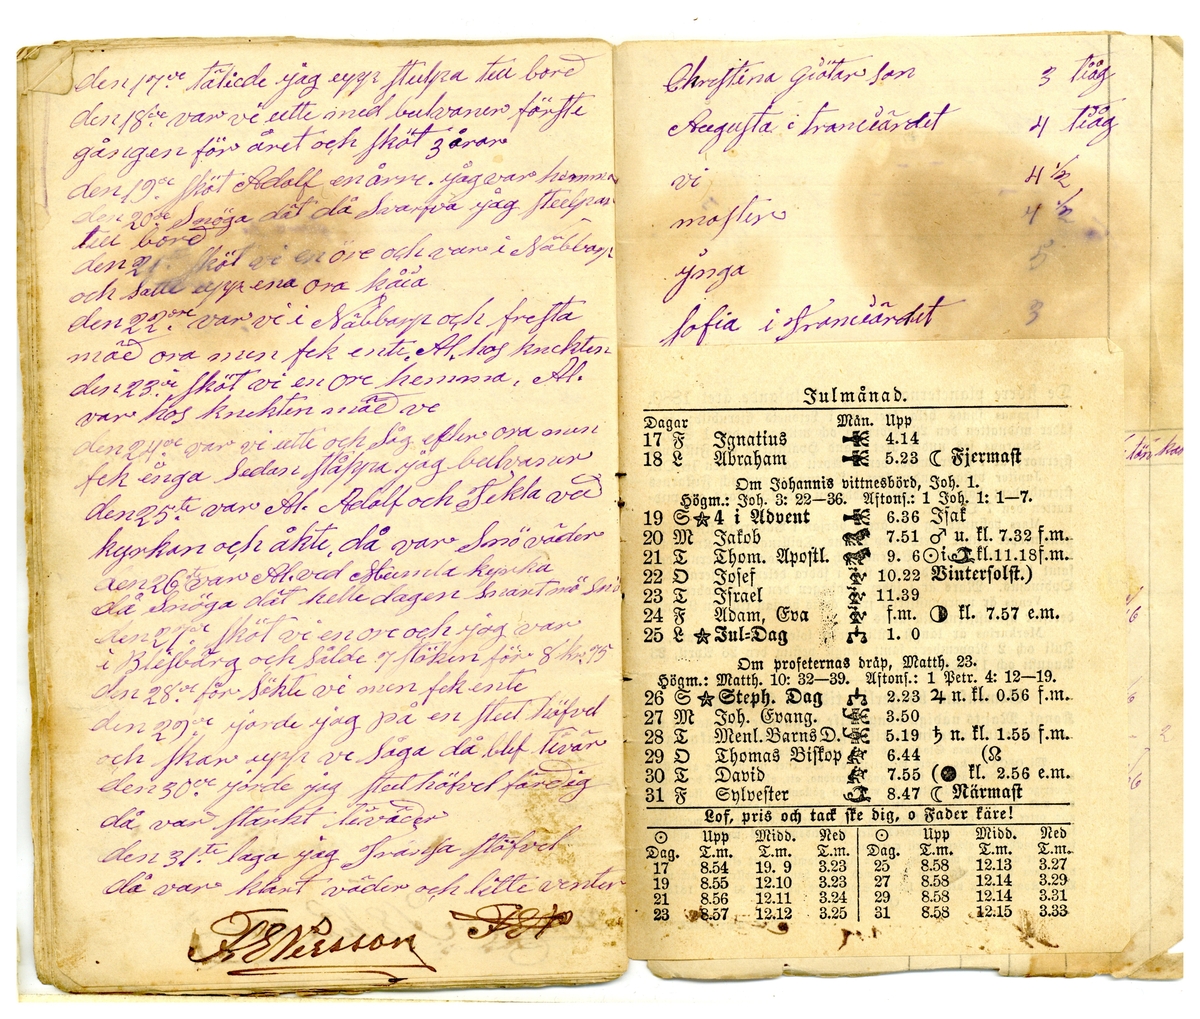 den 17de täliede jag upp stulpa till bord
den 18de var vi utte med bulvaner förste
gången för året och sköt 3 årar
den 19de sköt Adolf en årre. jag var hemma
den 20de Snöga dät då Svarfva jåg stulpar
till bord
den 21 sköt vi en öre och var i Näbbarp
och satte upp ena ora
den 22de var vi i Näbbarp och fresta
mäd ora men fek ente. Al. hos knekten
den 23de sköt vi en ore hemma, Al.
var hos knekten mäd ve
den 24de var vi utte och såg efter ora men
fek änga sedan ståppa jag bulvaner
den 25te var Al. Adolf och Tekla ved
kyrkan och åkte, då var Snö väder
den 26te var Al. ved kyrka
då Snöga dät hella dagen
den 27de sköt vi en ore och jag var
i och sålde 7 stöken för 8 kr. 75
den 28de för sökte vi men fek ente
den 29de jorde jag på en stul höfvel
och skar upp ve såga då blef tövär
den 30de jorde jag stul höfvel färdig
då var starkt töväder
den 31te laga jag stöfvel
då var hårt väder och litte venter
F E Persson F E P
Christina Götar son 3 tiåg
Augusta i 4 tiåg
vi 4 1/2
moster 4 1/2
ynga 5
Sofia i 3
Julmånad.
Dagar Mån. Upp
17 F Ignatius 4.14
18 L Abraham 5.23 ☾ Fjermast
Om Johannis vittnesbörd, Joh. 1.
Högm.: Joh. 3: 22—36. Aftons.: 1 Joh. 1: 1—7.
19 S ☆ 4 i Advent 6.36 Isak
20 M Jakob 7.51 ♂ u. kl. 7.32 f.m.
21 T Thom. Apostl. 9. 6 ☉ i ♑ kl. 11.18 f.m.
22 O Josef 10.22 Vintersolst.)
23 T Israel 11.39
24 F Adam, Eva f.m. ◑ kl. 7.57 e.m.
25 L ☆ Jul-Dag 1. 0
Om profeternas dråp, Matth. 23.
Högm.: Matth. 10: 32—39. Aftons.: 1 Petr. 4: 12—19.
26 S ☆ Steph. Dag 2.23 ♃ n. kl. 0.56 f.m.
27 M Joh. Evang. 3.50
28 T Menl. Barns D. 5.19 ♄ n. kl. 1.55 f.m.
29 O Thomas Biskop 6.44 (☊
30 T David 7.55 (● kl. 2.56 e.m.
31 F Sylvester 8.47 ☾ Närmast
Lof, pris och tack ske dig, o Fader käre!
☉ Upp Midd. Ned ☉ Upp Midd. Ned
Dag. T.m. T.m. T.m. Dag. T.m. T.m. T.m.
17 8.54 19. 9 3.23 25 8.58 12.13 3.27
19 8.55 12.10 3.23 27 8.58 12.14 3.29
21 8.56 12.11 3.24 29 8.58 12.14 3.31
23 8.57 12.12 3.25 31 8.58 12.15 3.33